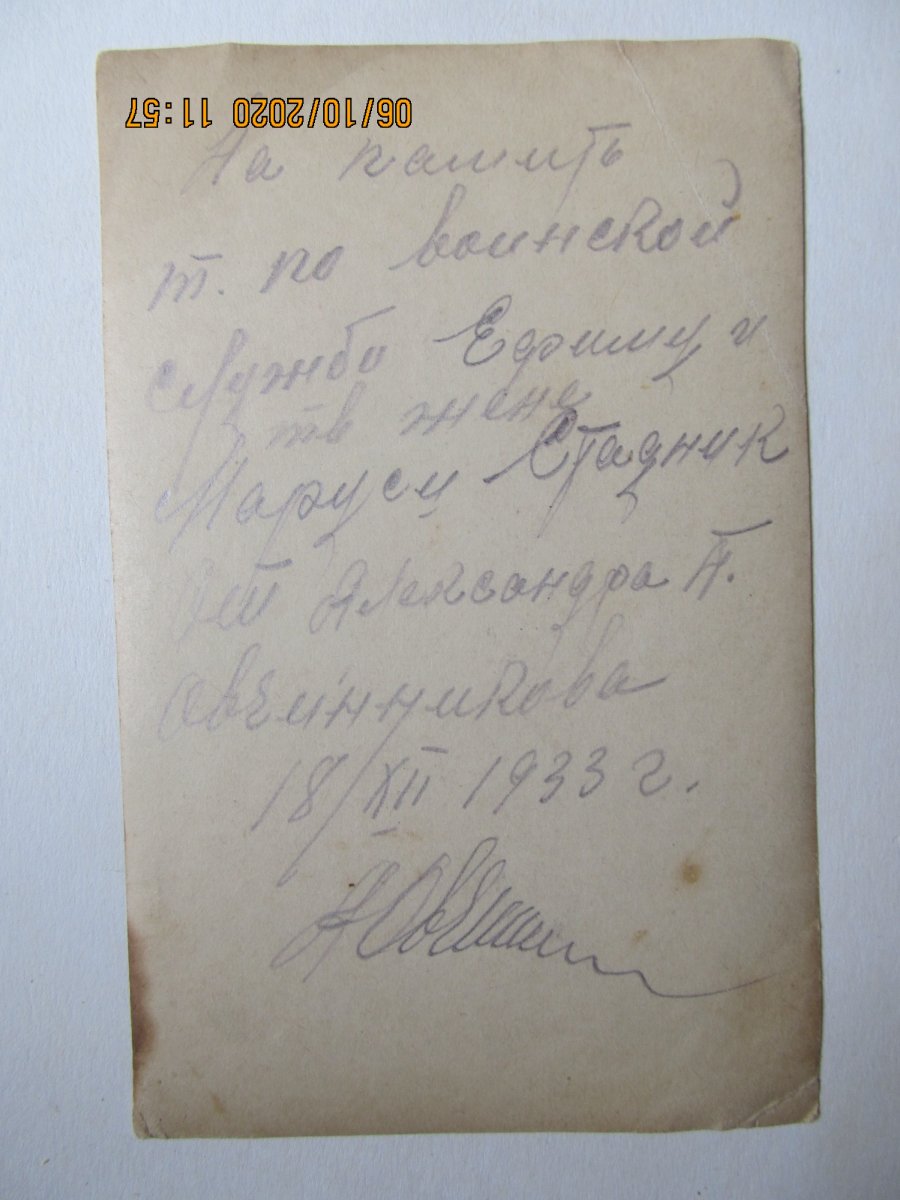 06/10/2020 11:57
На память
т. по воинской
службе Ефиму и
тв жене
Маруси Стадник
от Александра П.
Овчинникова
18/XII 1933 г.
АОвчинн